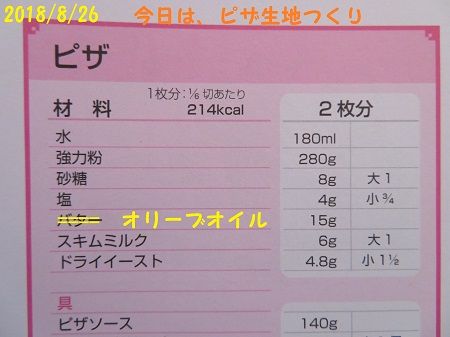 2018/8/26 今日は、ピザ生地つくり
ピザ
1枚分:⅙切あたり
材料 214kcal 2枚分
水 180ml
強力粉 280g
砂糖 8g 大1
塩 4g 小¾
バター オリーブオイル 15g
スキムミルク 6g 大1
ドライイースト 4.8g 小1½
具
ピザソース 140g